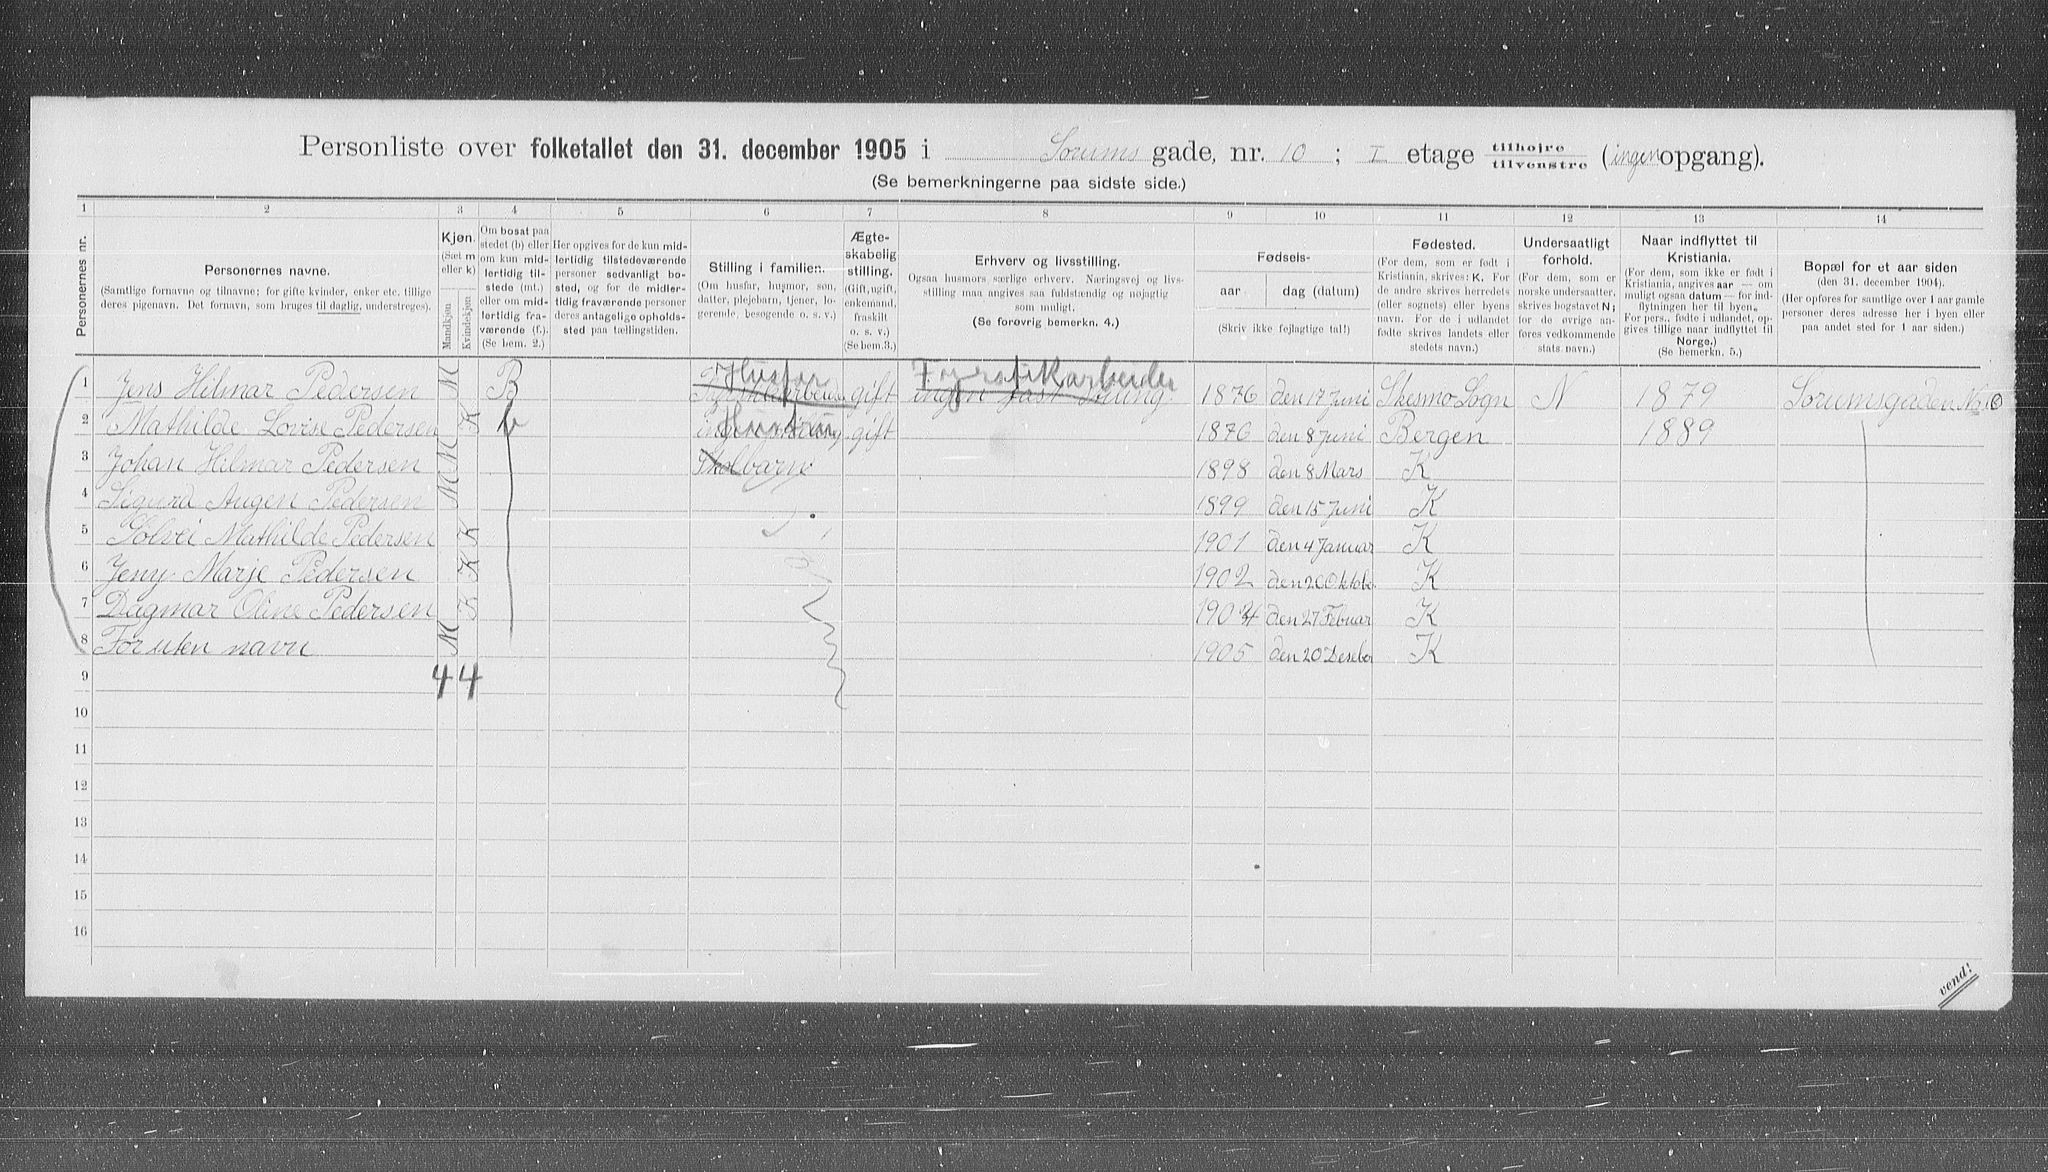 Personliste over folketallet den 31. december 1905 i Sorums gade, nr. 10 ; I etage tilhøjre tilvenstre (ingen opgang).
(Se bemerkningerne paa sidste side.)
1 2 3 4 5 6 7 8 9 10 11 12 13 14
Personernes nr.
Personernes navne.
(Samtlige fornavne og tilnavne; for gifte kvinder, enker etc. tillige
deres pigenavn. Det fornavn, som bruges til daglig, understreges).
Kjøn.
(Sæt m
eller k)
Mandkjøn
Kvindekjøn
Om bosat paa
stedet (b) eller
om kun mid-
lertidig til-
stede (mt.)
eller om mid-
lertidig fra-
værende (f.).
(Se bem. 2.)
Her opgives for de kun mid-
lertidig tilstedeværende
personer sedvanligt bo-
sted, og for de midler-
tidig fraværende personer
deres antagelige opholds-
sted paa tællingstiden.
Stilling i familien.
(Om husfar, husmor, søn,
datter, plejebarn, tjener, lo-
gerende, besøgende o. s. v.)
Ægte-
skabelig
stilling.
(Gift, ugift,
enkemand,
fraskilt
o. s. v.)
(Se bem. 3.)
Erhverv og livsstilling.
Ogsaa husmors særlige erhverv. Næringsvej og livs-
stilling maa angives saa fuldstændig og nøjagtig
som muligt.
(Se forøvrig bemerkn. 4.)
Fødsels-
aar
dag (datum)
(Skriv ikke fejlagtige tal!)
Fødested.
(For dem, som er født i
Kristiania, skrives: K. For
de andre skrives herredets
(eller sognets) eller byens
navn. For de i udlandet
fødte skrives landets eller
stedets navn.)
Undersaatligt
forhold.
(For dem, som er
norske undersaatter,
skrives bogstavet N;
for de øvrige an-
føres vedkommende
stats navn.)
Naar indflyttet til
Kristiania.
(For dem, som ikke er født i
Kristiania, angives aar — om
muligt ogsaa datum — for ind-
flytningen her til byen.
For pers. fødte i udlandet, op-
gives tillige naar indflyttet til
Norge.)
(Se bemerkn. 5.)
Bopæl for et aar siden
(den 31. december 1904).
(Her opføres for samtlige over 1 aar gamle
personer deres adresse her i byen eller
paa andet sted for 1 aar siden.)
1 Jens Hilmar Pedersen M B Husfar gift Fabrikarbeider ingen fast 1876 den 17 Juni Skesmo Sogn N 1879 Sorumsgaden No 10
2 Mathilde Lovise Pedersen K b Hustru gift 1876 den 8 Juni Bergen 1889
3 Johan Hilmar Pedersen M Skolbarn 1898 den 8 Mars K
4 Sigurd Augen Pedersen M 1899 den 15 Juni K
5 Solvei Mathilde Pedersen K 1901 den 4 Januar K
6 Jeny Marje Pedersen K 1902 den 20 Oktobe K
7 Dagmar Oline Pedersen K 1904 den 27 Febuar K
8 For uten navn M 1905 den 20 Deseber K
9 4 4
10
11
12
13
14
15
16
vend!